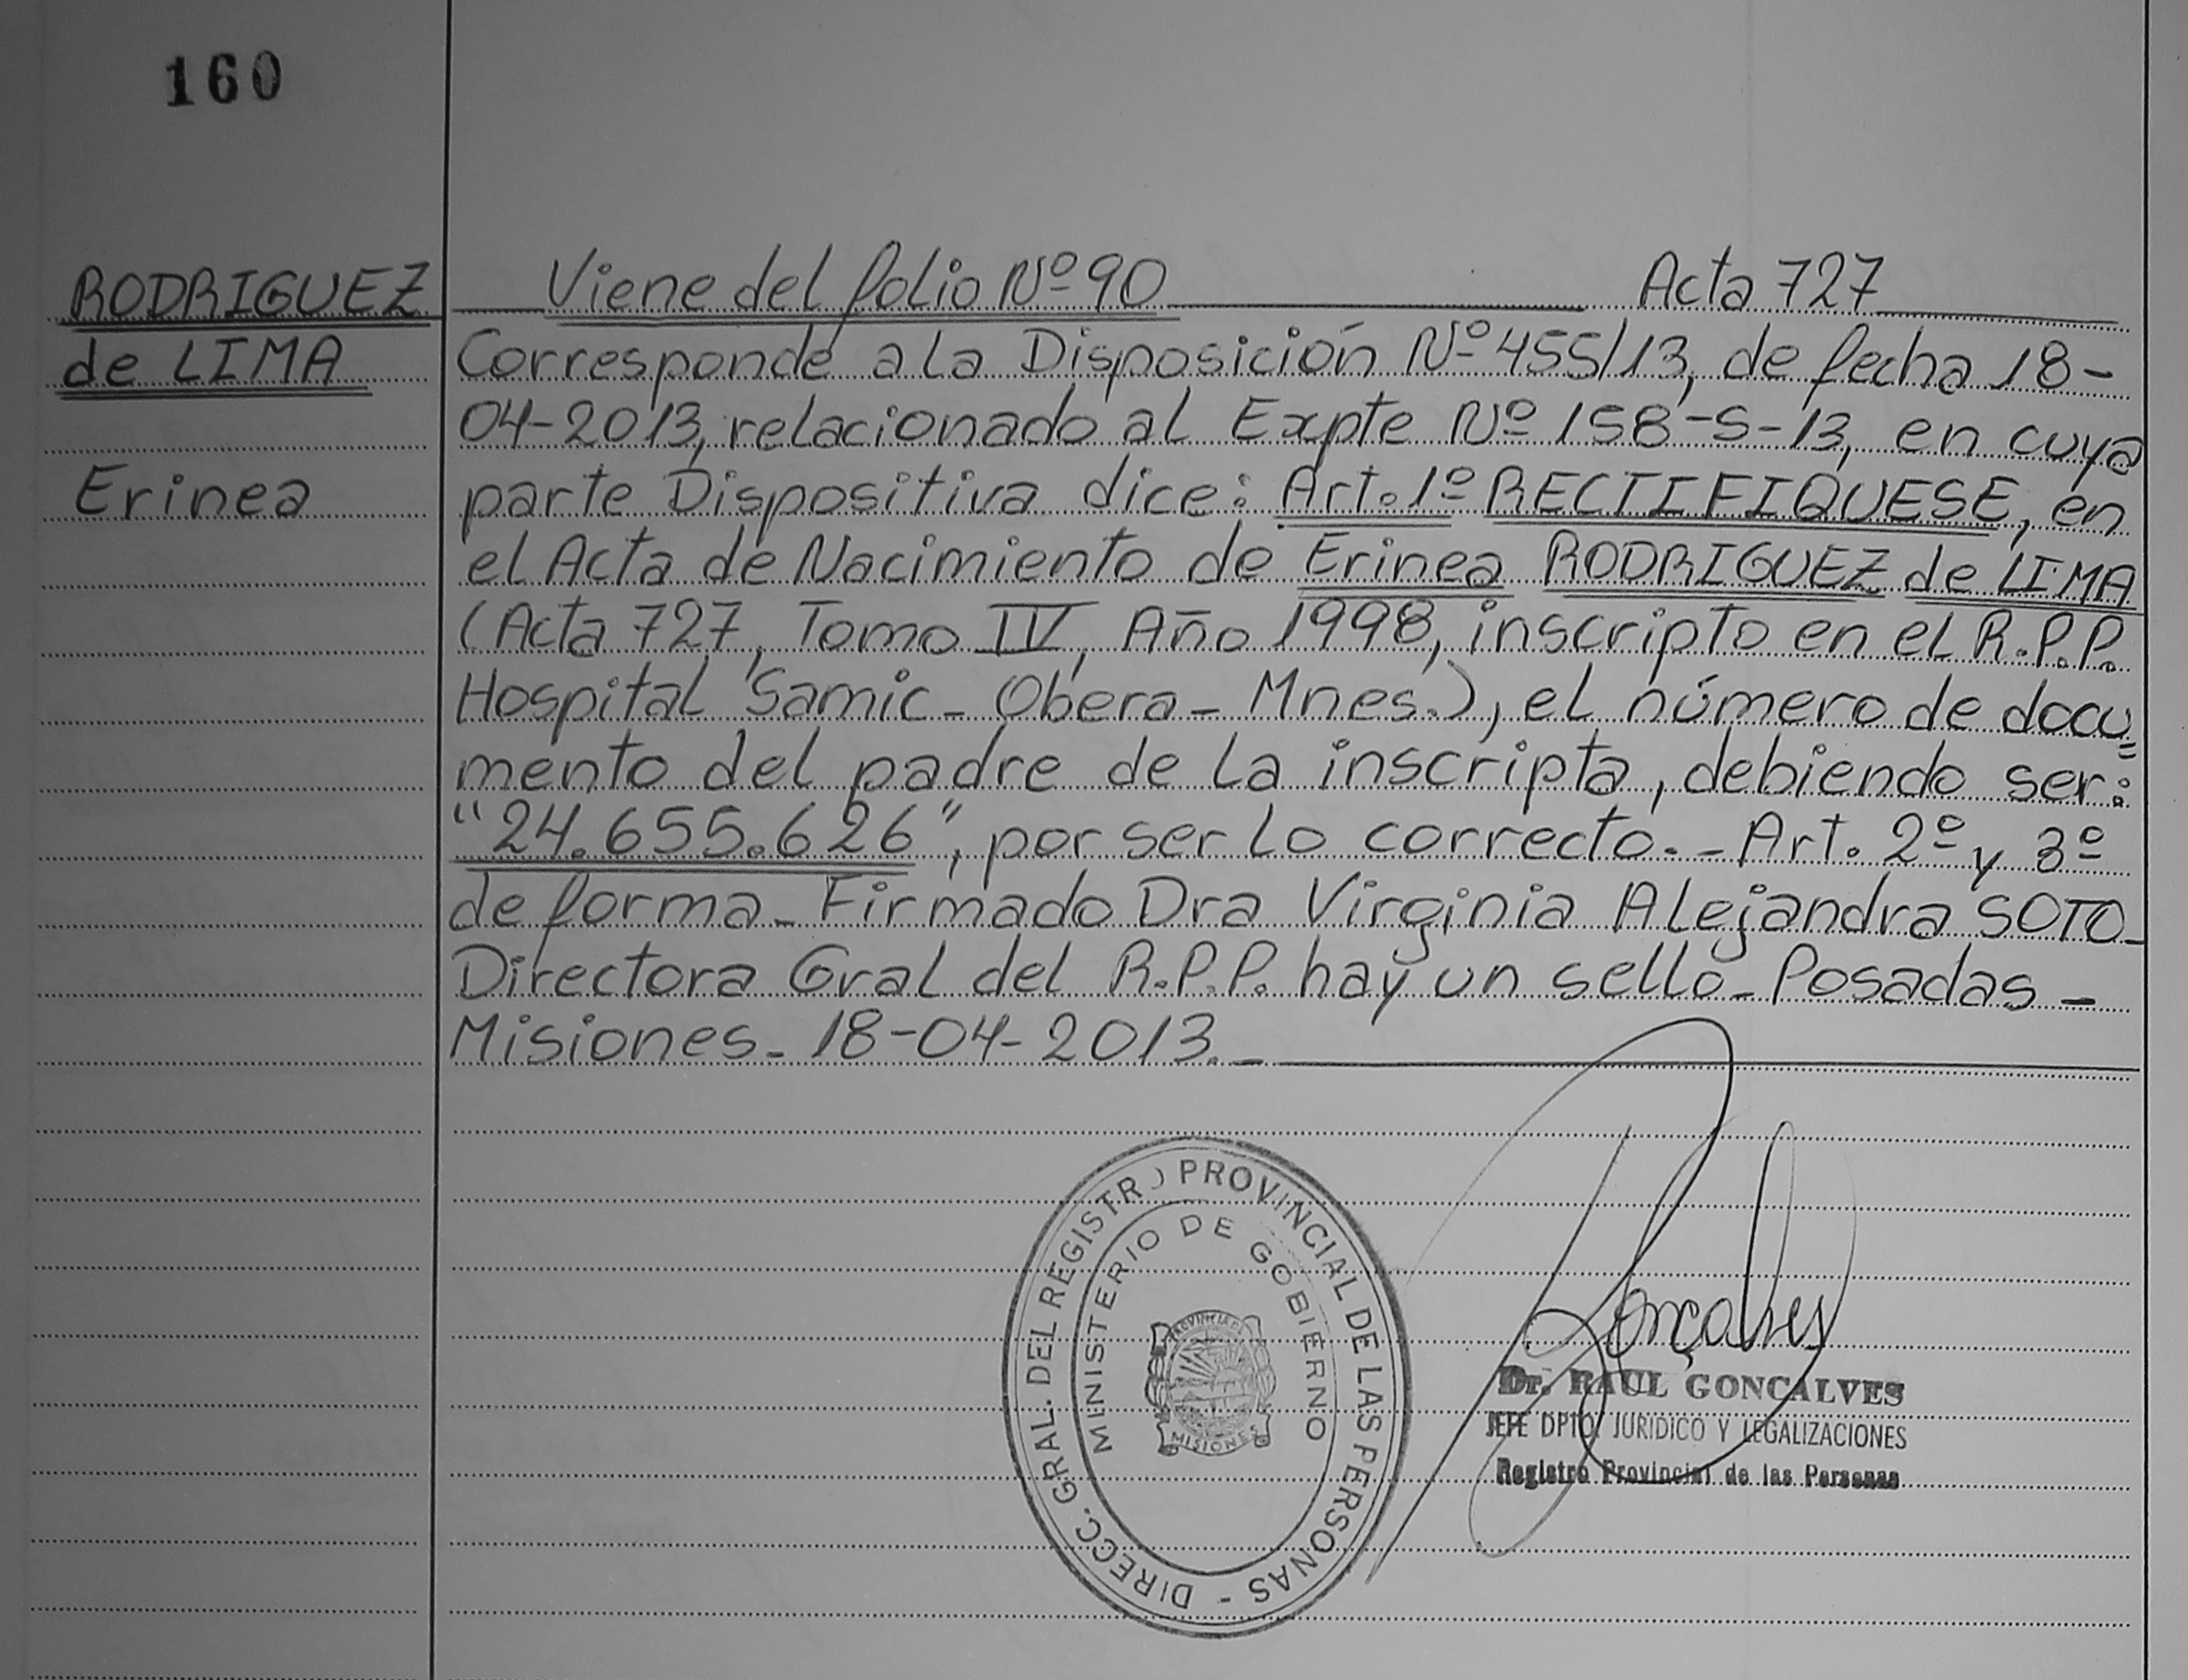 160
RODRIGUEZ
de LIMA
Erinea
Viene del folio Nº 90 Acta 727
Corresponde a la Disposición Nº 455/13, de fecha 18-
04-2013, relacionado al Expte Nº 158-S-13, en cuya
parte Dispositiva dice: Art. 1º RECTIFIQUESE, en
el Acta de Nacimiento de Erinea RODRIGUEZ de LIMA
(Acta 727, Tomo IV, Año 1998, inscripto en el R.P.P.
Hospital Samic - Obera - Mnes.), el número de docu=
mento del padre de la inscripta, debiendo ser:
"24.655.626", por ser lo correcto. - Art. 2º y 3º
de forma - Firmado Dra Virginia Alejandra SOTO -
Directora Gral del R.P.P. hay un sello - Posadas -
Misiones - 18-04-2013. -
DIRECC. GRAL. DEL REGISTRO PROVINCIAL DE LAS PERSONAS -
MINISTERIO DE GOBIERNO
PROVINCIA DE
MISIONES
Gonçalves
Dr. RAUL GONCALVES
JEFE DPTO. JURIDICO Y LEGALIZACIONES
Registro Provincial de las Personas